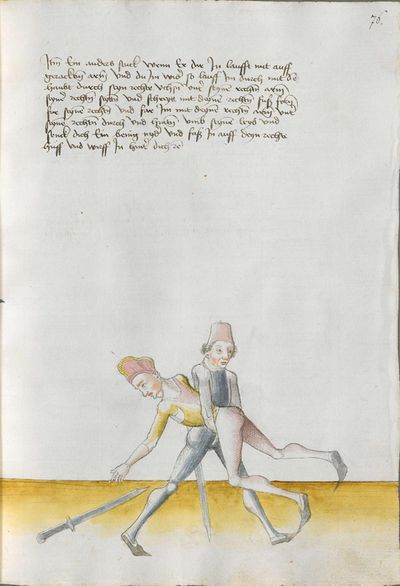 76.
Itm̄ Ein anders stuck wenn Er dir In laufft mit auff
gerackten armē Vnd du Im wid̄ so lauff Im durch mit dē
haubt durch sein rechte Vchsn̄ vnt̄ seinē rechten arm
seinē rechtn̄ seytn̄ Vnd schreyt mit deinē rechtn̄ fuß ferr
fur seinē rechtn̄ Vnd far Im mit deinē rechtn̄ arm vnt̄
seinē rechtn̄ durch vnd hintn̄ vmb seinen leyb Vnd
senck dich Ein wenig nyd̄ Vnd faß In auff dein rechte
huff Vnd wirff In hint̄ dich ꝛc